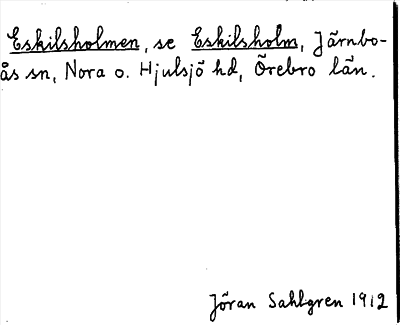 Eskilsholmen, se Eskilsholm, Järnbo-
ås sn, Nora o. Hjulsjö hd, Örebro län.
Jöran Sahlgren 1912